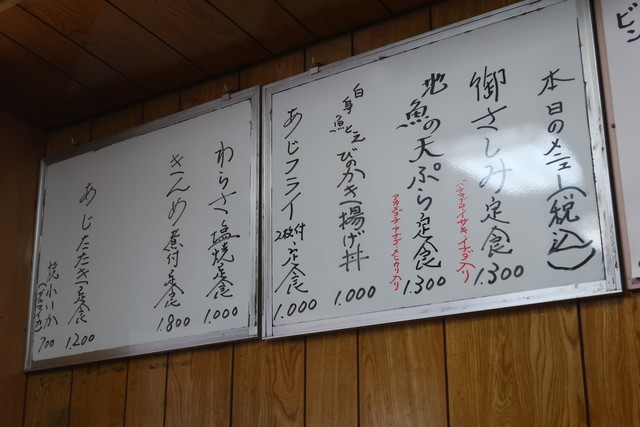 本日のメニュー(税込)
御さしみ定食 1.300
イサキ・イナダ入り
地魚の天ぷら定食 1.300
アカメゴチ・アナゴ・メヒカリ入り
白身魚とえびのかき揚げ丼 1.000
あじフライ2枚付定食 1.000
わらさ塩焼定食 1.000
きんめ煮付定食 1.800
あじたたき定食 1.200
焼小いか 700
ビン